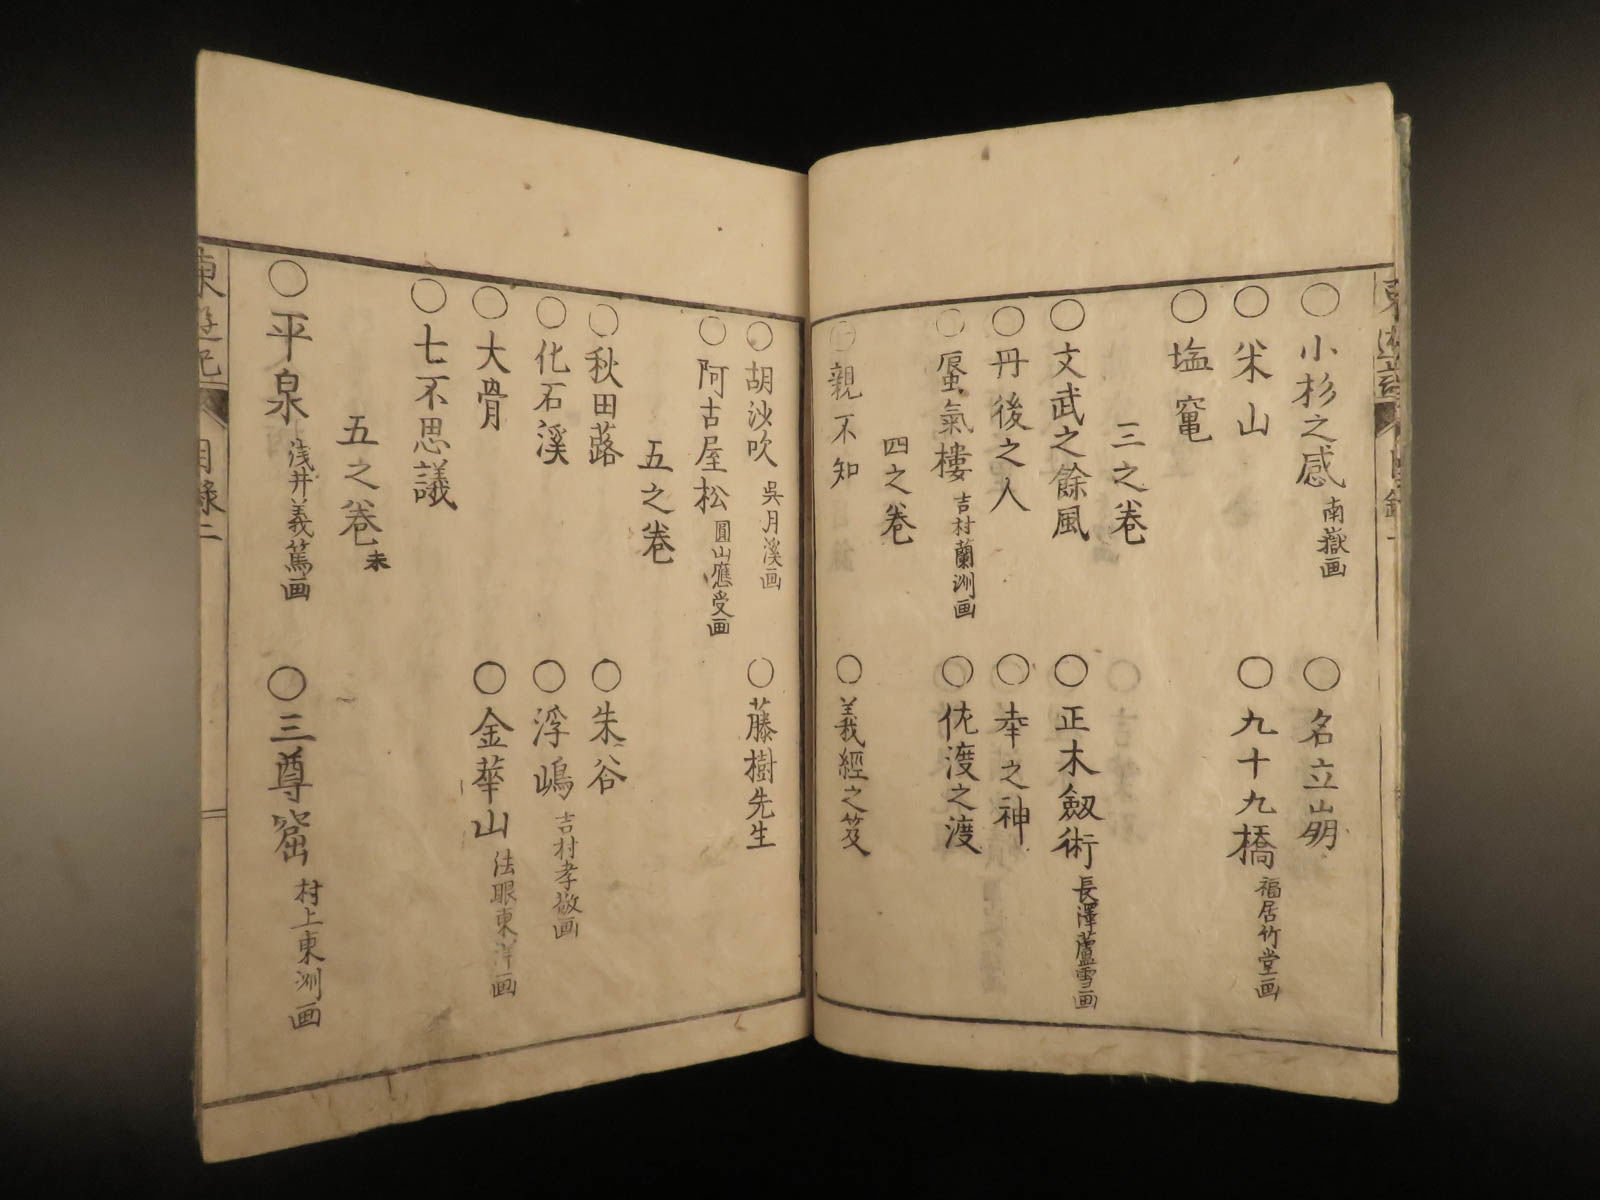 ○小杉之感 南嶽画 ○名立崩
○米山 ○九十九橋 福居竹堂画
○塩竃
三之巻
○文武之餘風 ○正木劔術 長澤蘆雪画
○丹後之人 ○幸之神
○蜃氣樓 吉村蘭洲画 ○佐渡之渡
四之巻
○親不知 ○義經之笈
○胡沙吹 呉月溪画 ○藤樹先生
○阿古屋松 圓山應受画
五之巻
○秋田蕗 ○朱谷
○化石溪 ○浮嶋 吉村孝敬画
○大骨 ○金華山 法眼東洋画
○七不思議
五之巻 末
○平泉 浅井義篤画 ○三尊窟 村上東洲画
東遊記 目録 二